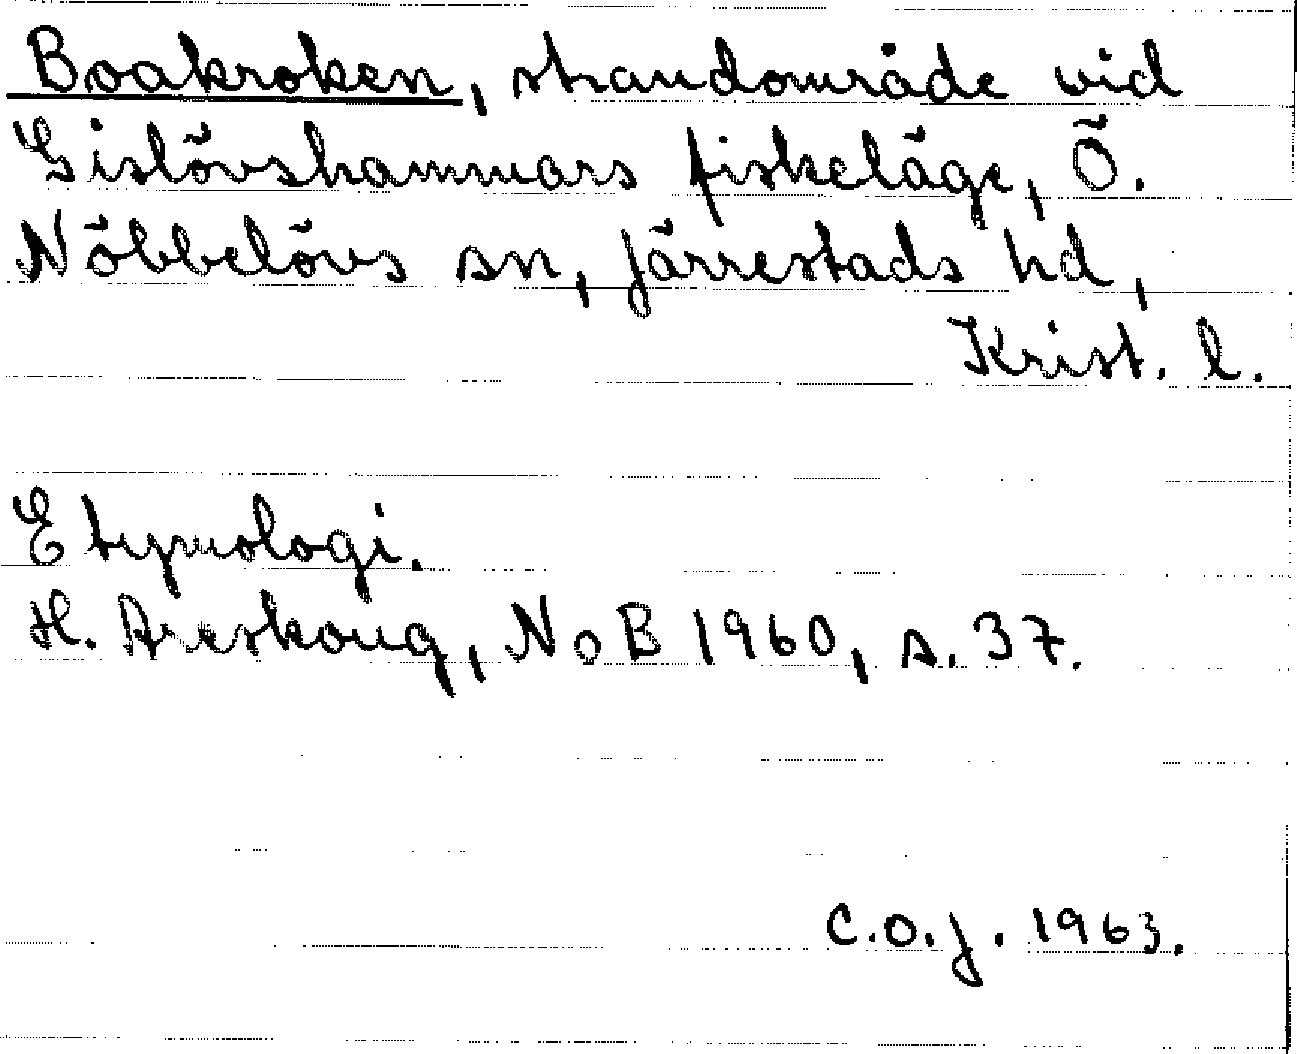 Boakroken, strandområde vid
Gislövshammars fiskeläge, Ö.
Nöbbelövs sn, Järrestads hd,
Krist. l.
Etymologi.
H. Areskoug, NoB 1960, s. 37.
C.O.J. 1963.